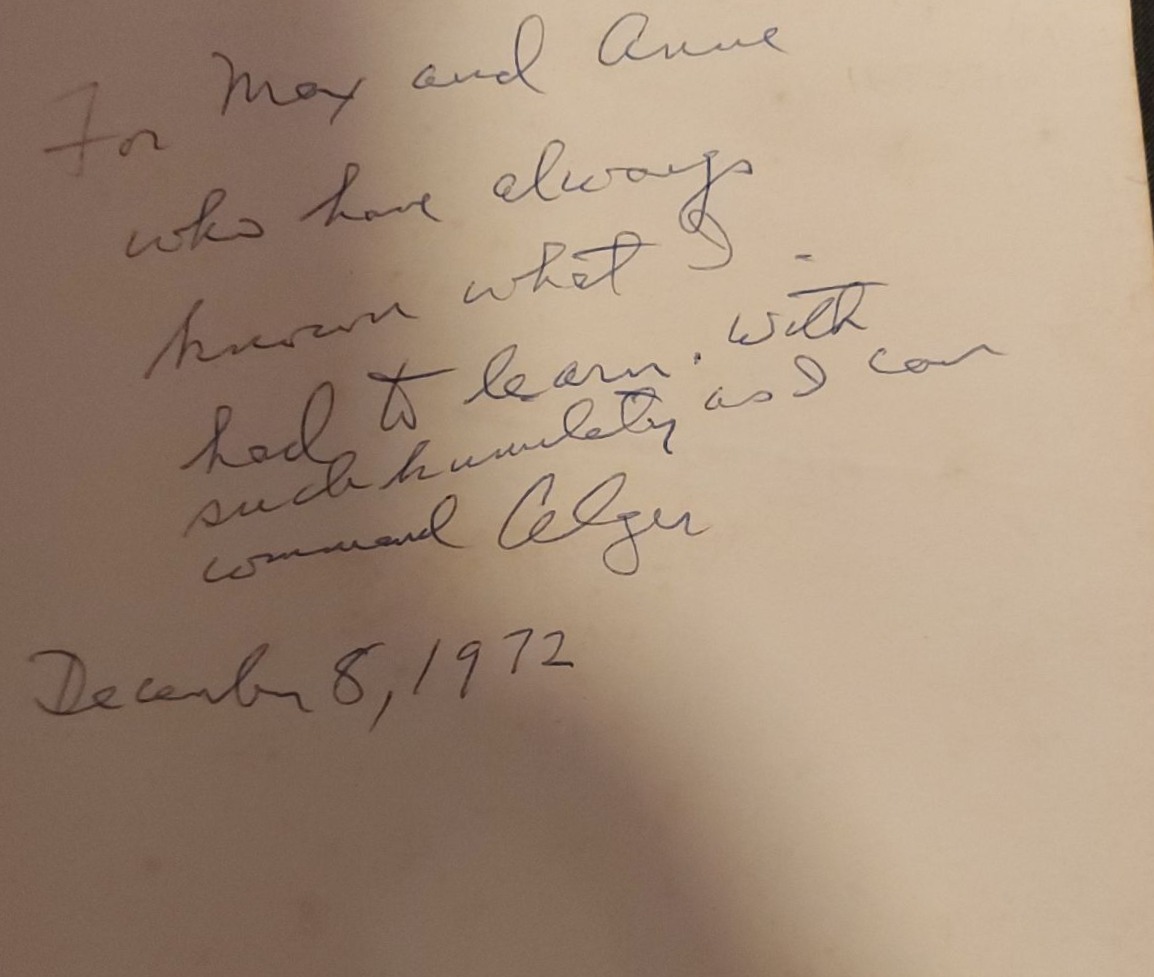 For Max and Anne
who have always
known what I
had to learn. With
such humility as I can
command Alger
December 8, 1972